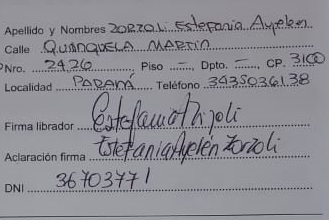 Apellido y Nombres ZORZOLI Estefania Ayelen
Calle QUINQUELA MARTIN
Nro. 2426 Piso —, Dpto. —, CP. 3100
Localidad PARANÁ Teléfono 3435036138
Firma librador Estefania Zorzoli
Aclaración firma Estefania Ayelén Zorzoli
DNI 36703771